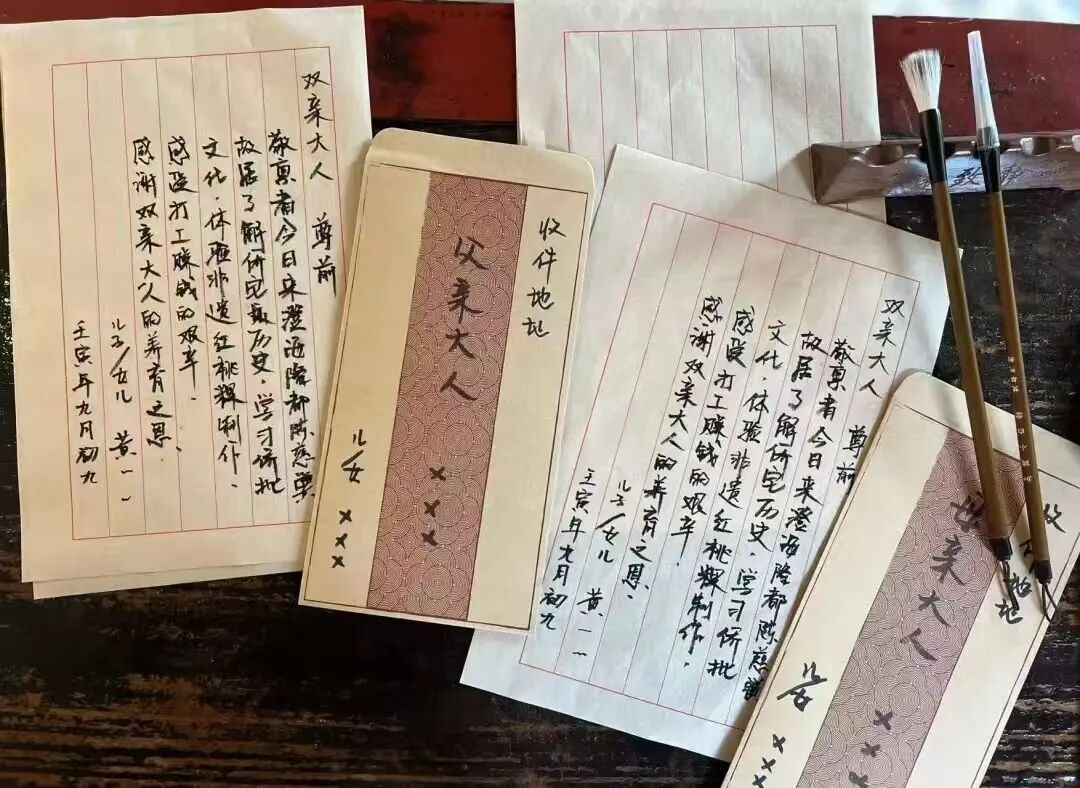 双亲大人 尊前
敬禀者今日来澄海隆都陈慈黉
故居了解侨宅历史，学习侨批
文化，体验非遗红桃粿制作，
感受打工赚钱的艰辛．
感谢双亲大人的养育之恩．
儿子/女儿 黄一一
壬寅年九月初九
收件地址
父亲大人 ×××
儿/女 ×××
双亲大人 尊前
敬禀者今日来澄海隆都陈慈黉
故居了解侨宅历史，学习侨批
文化，体验非遗红桃粿制作，
感受打工赚钱的艰辛．
感谢双亲大人的养育之恩．
儿子/女儿 黄一一
壬寅年九月初九
收 地址
母亲大人 ×××
儿/女 ×××